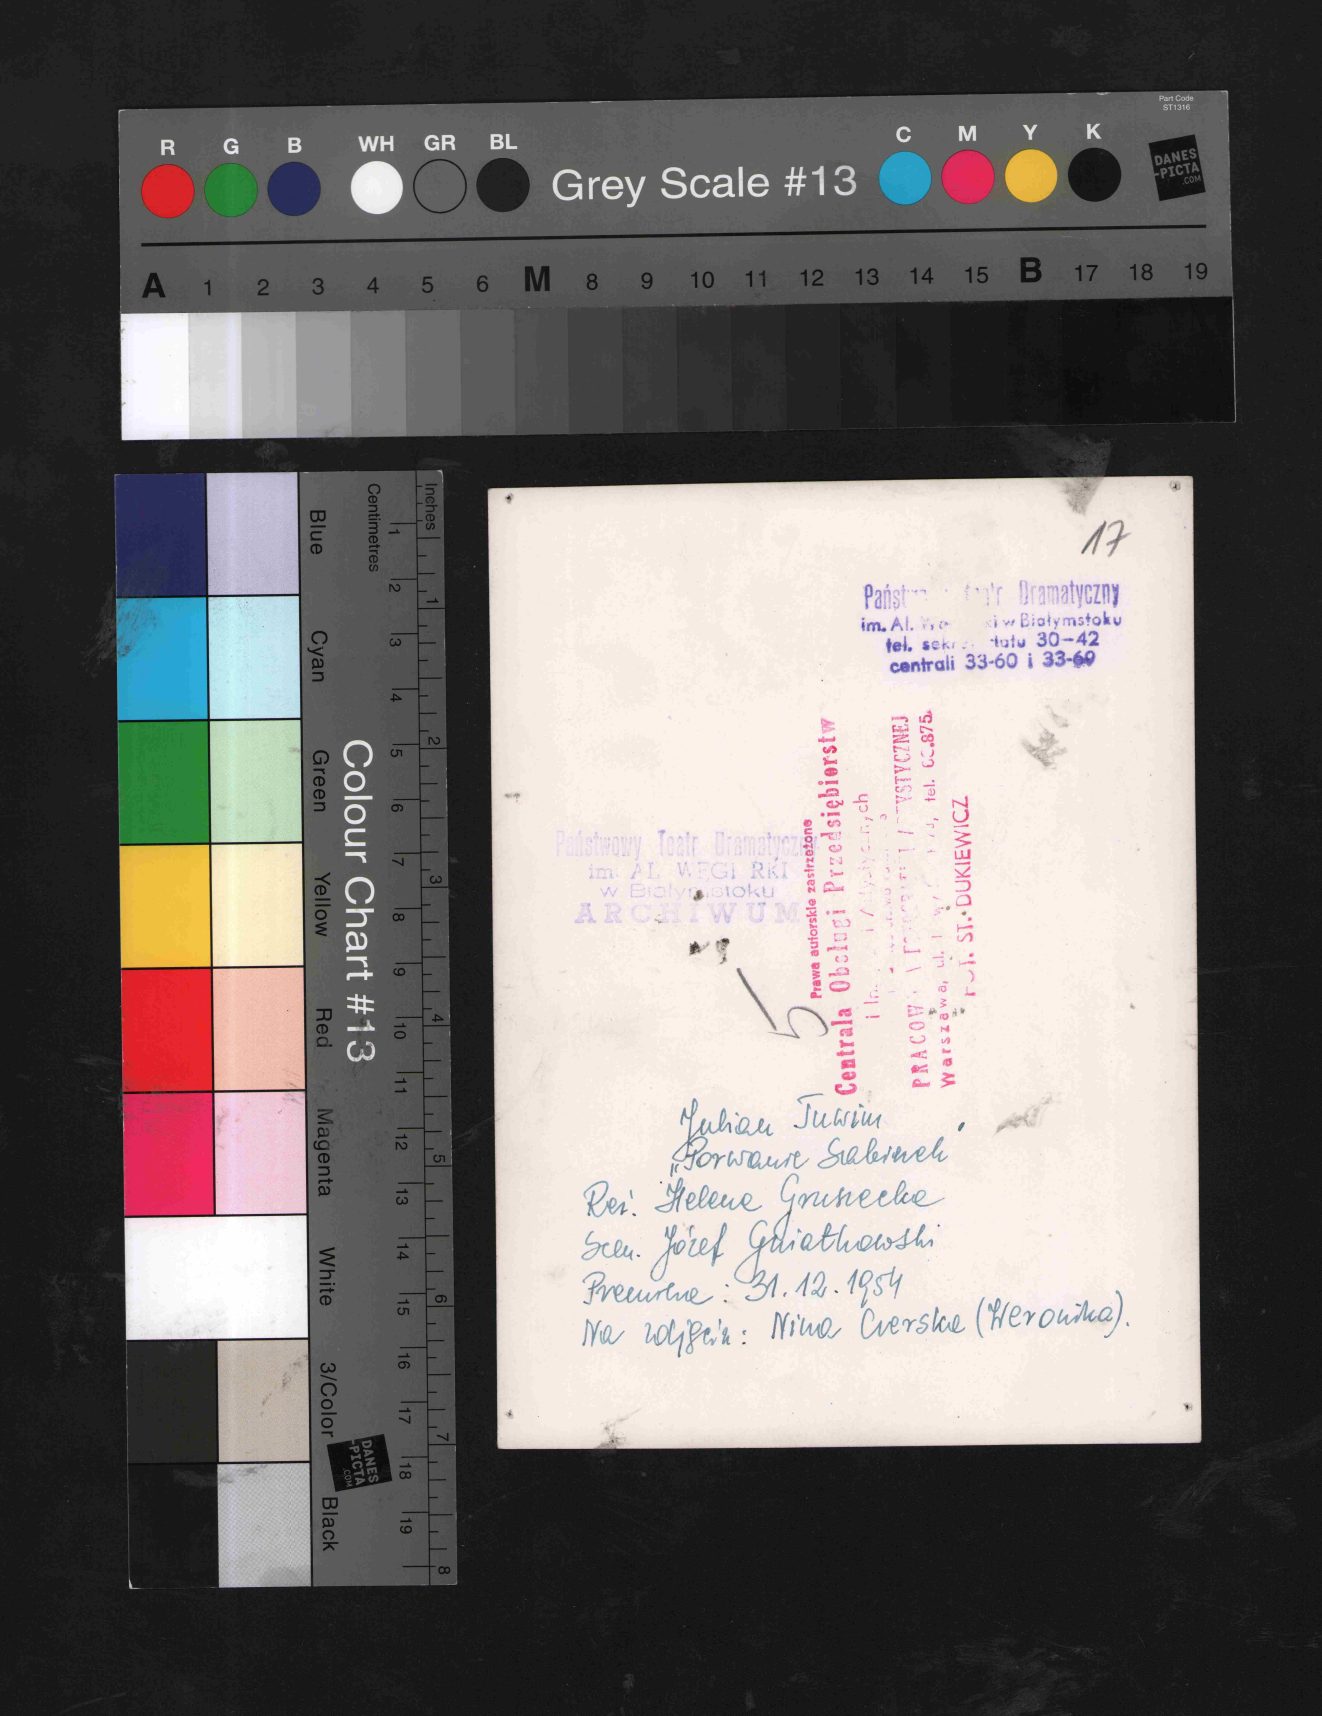 Part Code
ST1316
R G B WH GR BL Grey Scale #13 C M Y K
DANES
-PICTA
.COM
A 1 2 3 4 5 6 M 8 9 10 11 12 13 14 15 B 17 18 19
Colour Chart #13
Blue
Cyan
Green
Yellow
Red
Magenta
White
3/Color
Black
Centimetres
1 2 3 4 5 6 7 8 9 10 11 12 13 14 15 16 17 18 19
Inches
1 2 3 4 5 6 7 8
DANES
-PICTA
.COM
17
Dramatyczny
im. Al. w Białymstoku
tel. 30-42
centrali 33-60 i 33-60
Państwowy Teatr Dramatyczny
im. AL
w Białymstoku
ARCHIWUM
Prawa autorskie zastrzeżone
Centrala Obsługi Przedsiębiorstw
i
Warszawa, ul. tel.
ST. DUKIEWICZ
5
Julian Tuwim
„Porwanie Sabinek"
Reż. Helena Grusiecka
Scen. Józef Gwiatkowski
Premiera: 31.12.1954
Na zdjęciu: Nina Czerska (Weronika).